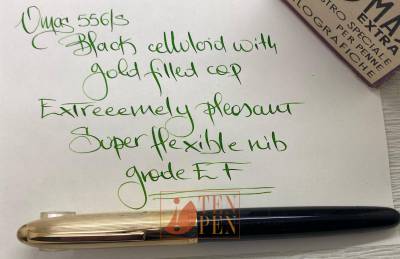 Omas 556/S
Black celluloid with
gold filled cap
Extreeemely pleasant
Super flexible nib
grade EF
MAS
EXTRA
STRO SPECIALE
PER PENNE
LOGRAFICHE
TEN
PEN